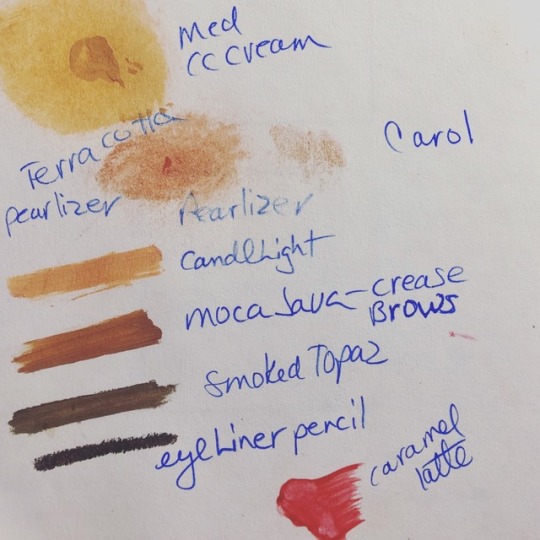 Med
CC Cream
Terracotta
pearlizer
Carol
Pearlizer
Candlelight
moca Java-crease
Brows
Smoked Topaz
eyeliner pencil
caramel
latte